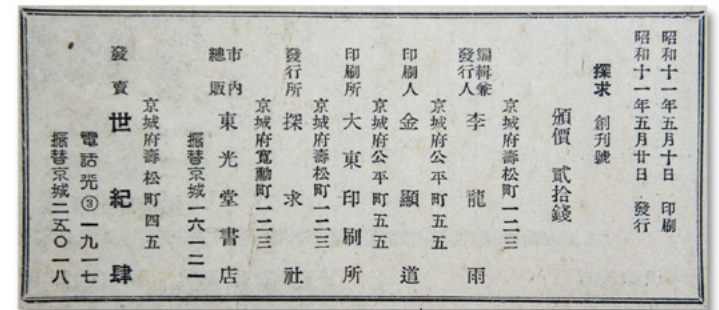 昭和十一年五月十日 印刷
昭和十一年五月廿日 發行
探求 創刊號
頒價 貳拾錢
京城府壽松町一二三
編輯兼
發行人 李龍雨
京城府公平町五五
印刷人 金顯道
京城府公平町五五
印刷所 大東印刷所
京城府壽松町一二三
發行所 探求社
京城府寬勳町一二三
市內
總販 東光堂書店
振替京城一六一二一
京城府壽松町四五
發賣 世紀肆
電話光③一九一七
振替京城二五〇一八